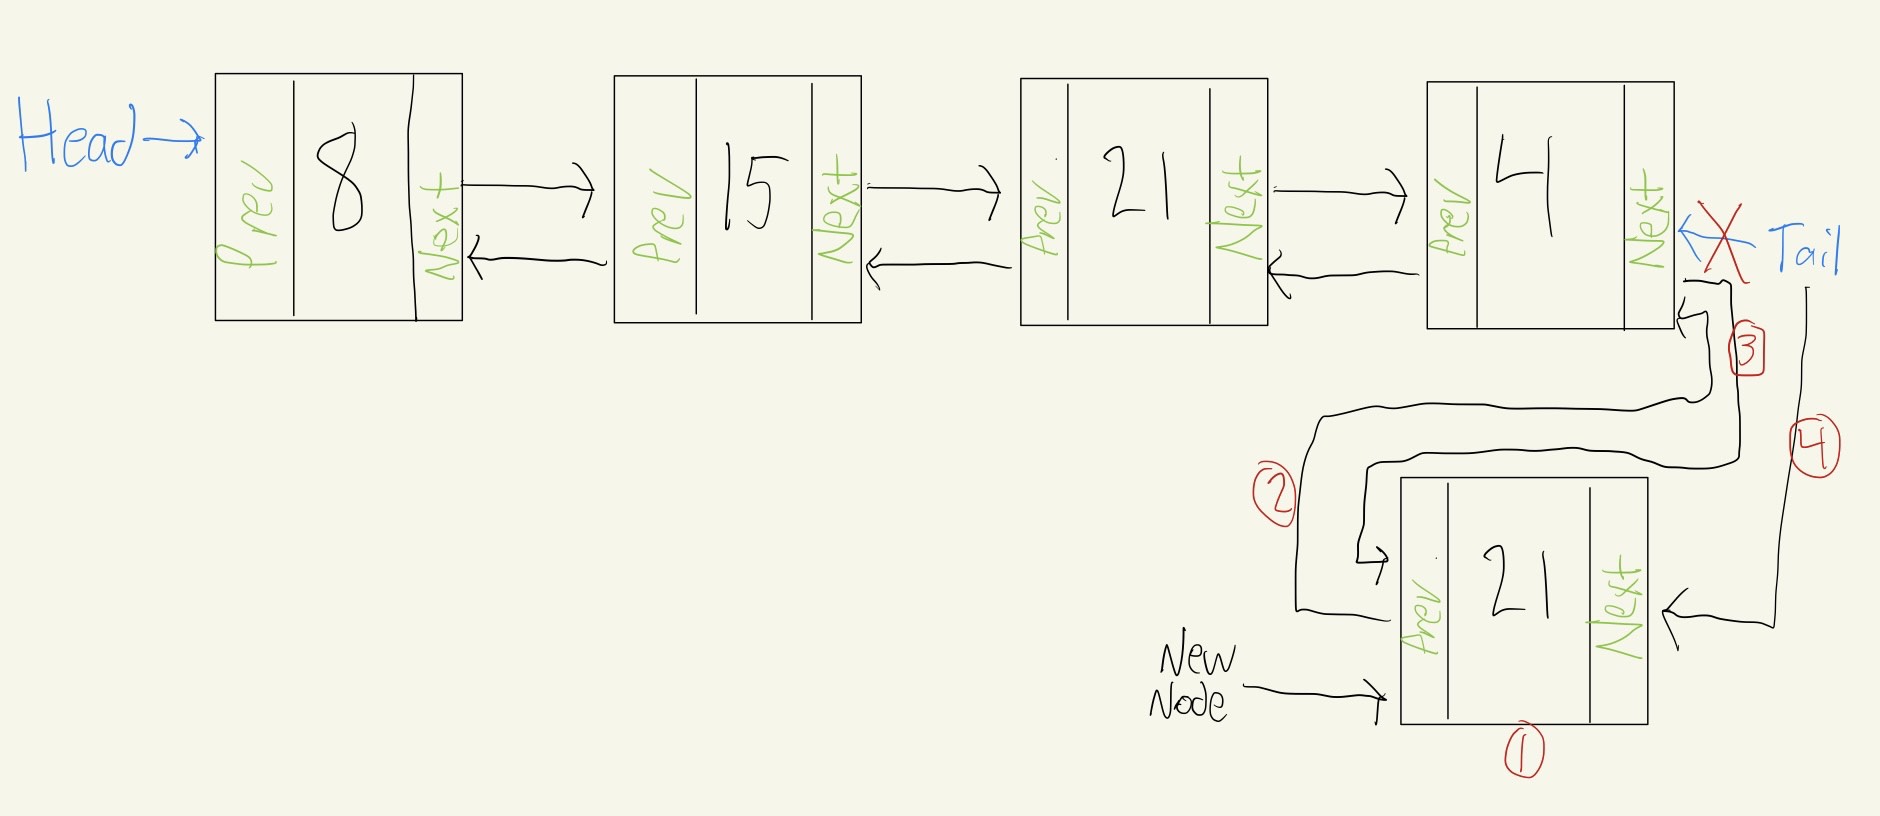 Head
Prev 8 Next
Prev 15 Next
Prev 21 Next
Prev 4 Next
Tail
3
4
2
Prev 21 Next
New
Node
1